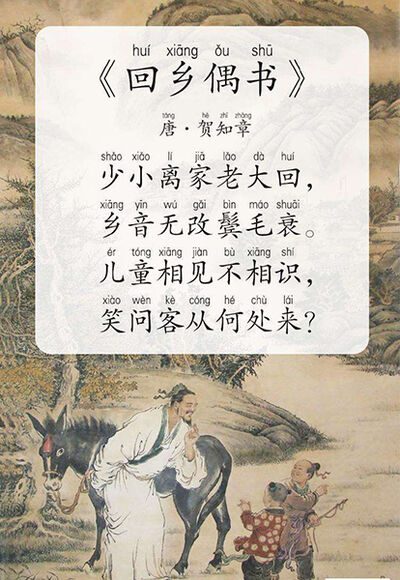 huí xiāng ǒu shū
《回乡偶书》
táng hè zhī zhāng
唐·贺知章
shǎo xiǎo lí jiā lǎo dà huí
少小离家老大回，
xiāng yīn wú gǎi bìn máo shuāi
乡音无改鬓毛衰。
ér tóng xiāng jiàn bù xiāng shí
儿童相见不相识，
xiào wèn kè cóng hé chù lái
笑问客从何处来？